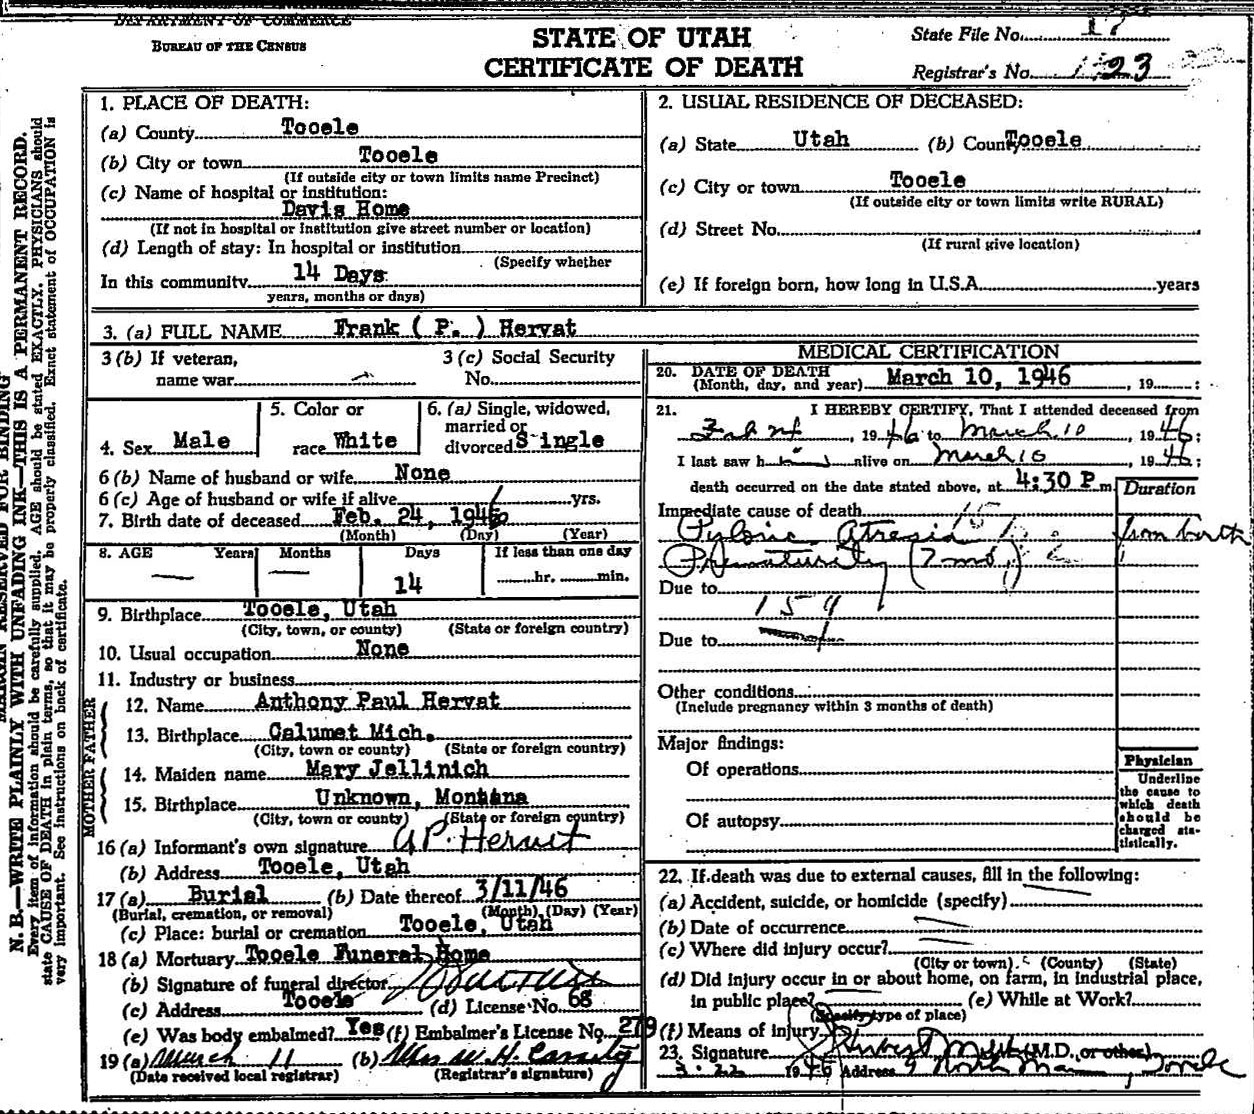 DEPARTMENT OF COMMERCE
BUREAU OF THE CENSUS
STATE OF UTAH
CERTIFICATE OF DEATH
State File No. 17
Registrar's No. 23
MARGIN RESERVED FOR BINDING
N. B.—WRITE PLAINLY WITH UNFADING INK—THIS IS A PERMANENT RECORD.
Every item of information should be carefully supplied. AGE should be stated EXACTLY. PHYSICIANS should
state CAUSE OF DEATH in plain terms, so that it may be properly classified. Exact statement of OCCUPATION is
very important. See instructions on back of certificate.
1. PLACE OF DEATH:
(a) County Tooele
(b) City or town Tooele
(If outside city or town limits name Precinct)
(c) Name of hospital or institution:
Davis Home
(If not in hospital or institution give street number or location)
(d) Length of stay: In hospital or institution
(Specify whether
In this community 14 Days
years, months or days)
2. USUAL RESIDENCE OF DECEASED:
(a) State Utah (b) County Tooele
(c) City or town Tooele
(If outside city or town limits write RURAL)
(d) Street No.
(If rural give location)
(e) If foreign born, how long in U.S.A. years
3. (a) FULL NAME Frank ( P. ) Hervat
3 (b) If veteran,
name war
3 (c) Social Security
No.
4. Sex Male
5. Color or
race White
6. (a) Single, widowed,
married or
divorced Single
6 (b) Name of husband or wife None
6 (c) Age of husband or wife if alive yrs.
7. Birth date of deceased Feb. 24, 1946
(Month) (Day) (Year)
8. AGE Years Months Days If less than one day
14 hr. min.
9. Birthplace Tooele, Utah
(City, town, or county) (State or foreign country)
10. Usual occupation None
11. Industry or business
FATHER
12. Name Anthony Paul Hervat
13. Birthplace Calumet Mich.
(City, town or county) (State or foreign country)
MOTHER
14. Maiden name Mary Jellinich
15. Birthplace Unknown, Montana
(City, town or county) (State or foreign country)
16 (a) Informant's own signature A P. Hervat
(b) Address Tooele, Utah
17 (a) Burial (b) Date thereof 3/11/46
(Burial, cremation, or removal) (Month) (Day) (Year)
(c) Place: burial or cremation Tooele, Utah
18 (a) Mortuary Tooele Funeral Home
(b) Signature of funeral director
(c) Address Tooele (d) License No. 68
(e) Was body embalmed? Yes (f) Embalmer's License No. 279
19 (a) March 11 (b) Mrs W. H. Cassity
(Date received local registrar) (Registrar's signature)
MEDICAL CERTIFICATION
20. DATE OF DEATH
(Month, day, and year) March 10, 1946, 19 :
21. I HEREBY CERTIFY, That I attended deceased from
Feb 24, 1946 to March 10 1946;
I last saw him alive on March 10 1946;
death occurred on the date stated above, at 4:30 P m.
Duration
Immediate cause of death
Pyloric Atresia from birth
Prematurity (7 mo)
Due to
159
Due to
Other conditions
(Include pregnancy within 3 months of death)
Major findings:
Of operations
Of autopsy
Physician
Underline
the cause to
which death
should be
charged sta-
tistically.
22. If death was due to external causes, fill in the following:
(a) Accident, suicide, or homicide (specify)
(b) Date of occurrence
(c) Where did injury occur?
(City or town) (County) (State)
(d) Did injury occur in or about home, on farm, in industrial place,
in public place? (e) While at Work?
(Specify type of place)
(f) Means of injury
23. Signature (M.D., or other)
3-22 1946 Address North Main, Tooele